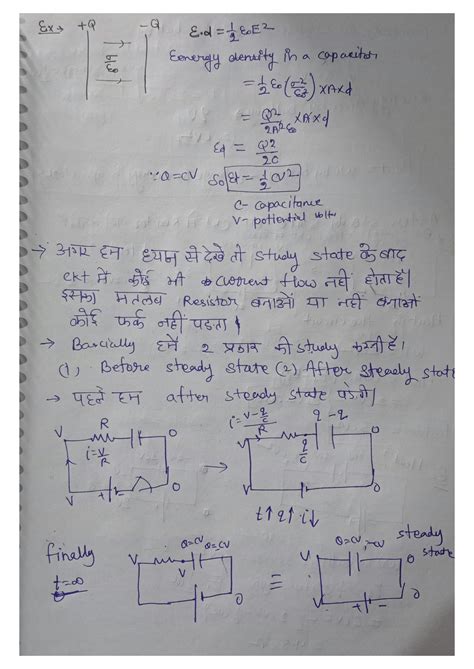 Ex→ +Q -Q E.d = 1/2 ε₀E²
σ/ε₀
Eenergy density in a capacitor
= 1/2 ε₀ (σ²/ε₀²) x A x d
= Q²/2A²ε₀ x A x d
Ed = Q²/2C
∵ Q = CV So Et = 1/2 CV²
C - capacitance
V - potiential volts
→ अगर हम ध्यान से देखे तो study state के बाद
ckt में कोई भी current flow नहीं होता है।
इसका मतलब Resistor बनाओं या नहीं बनाओं
कोई फर्क नहीं पड़ता।
→ Barcially हमें 2 प्रकार की study करनी है।
(1) Before steady state (2) After steady state
→ पहले हम after steady state पढ़ेगे।
V R 0 i = V-q/c / R q -q 0
i = V/R → q/c
V + - 0 V 0
t↑ q↑ i↓
finally
t = ∞
V Q=CV Q=CV 0 V Q=CV -CV 0 steady state
V ≡
0 V + - 0